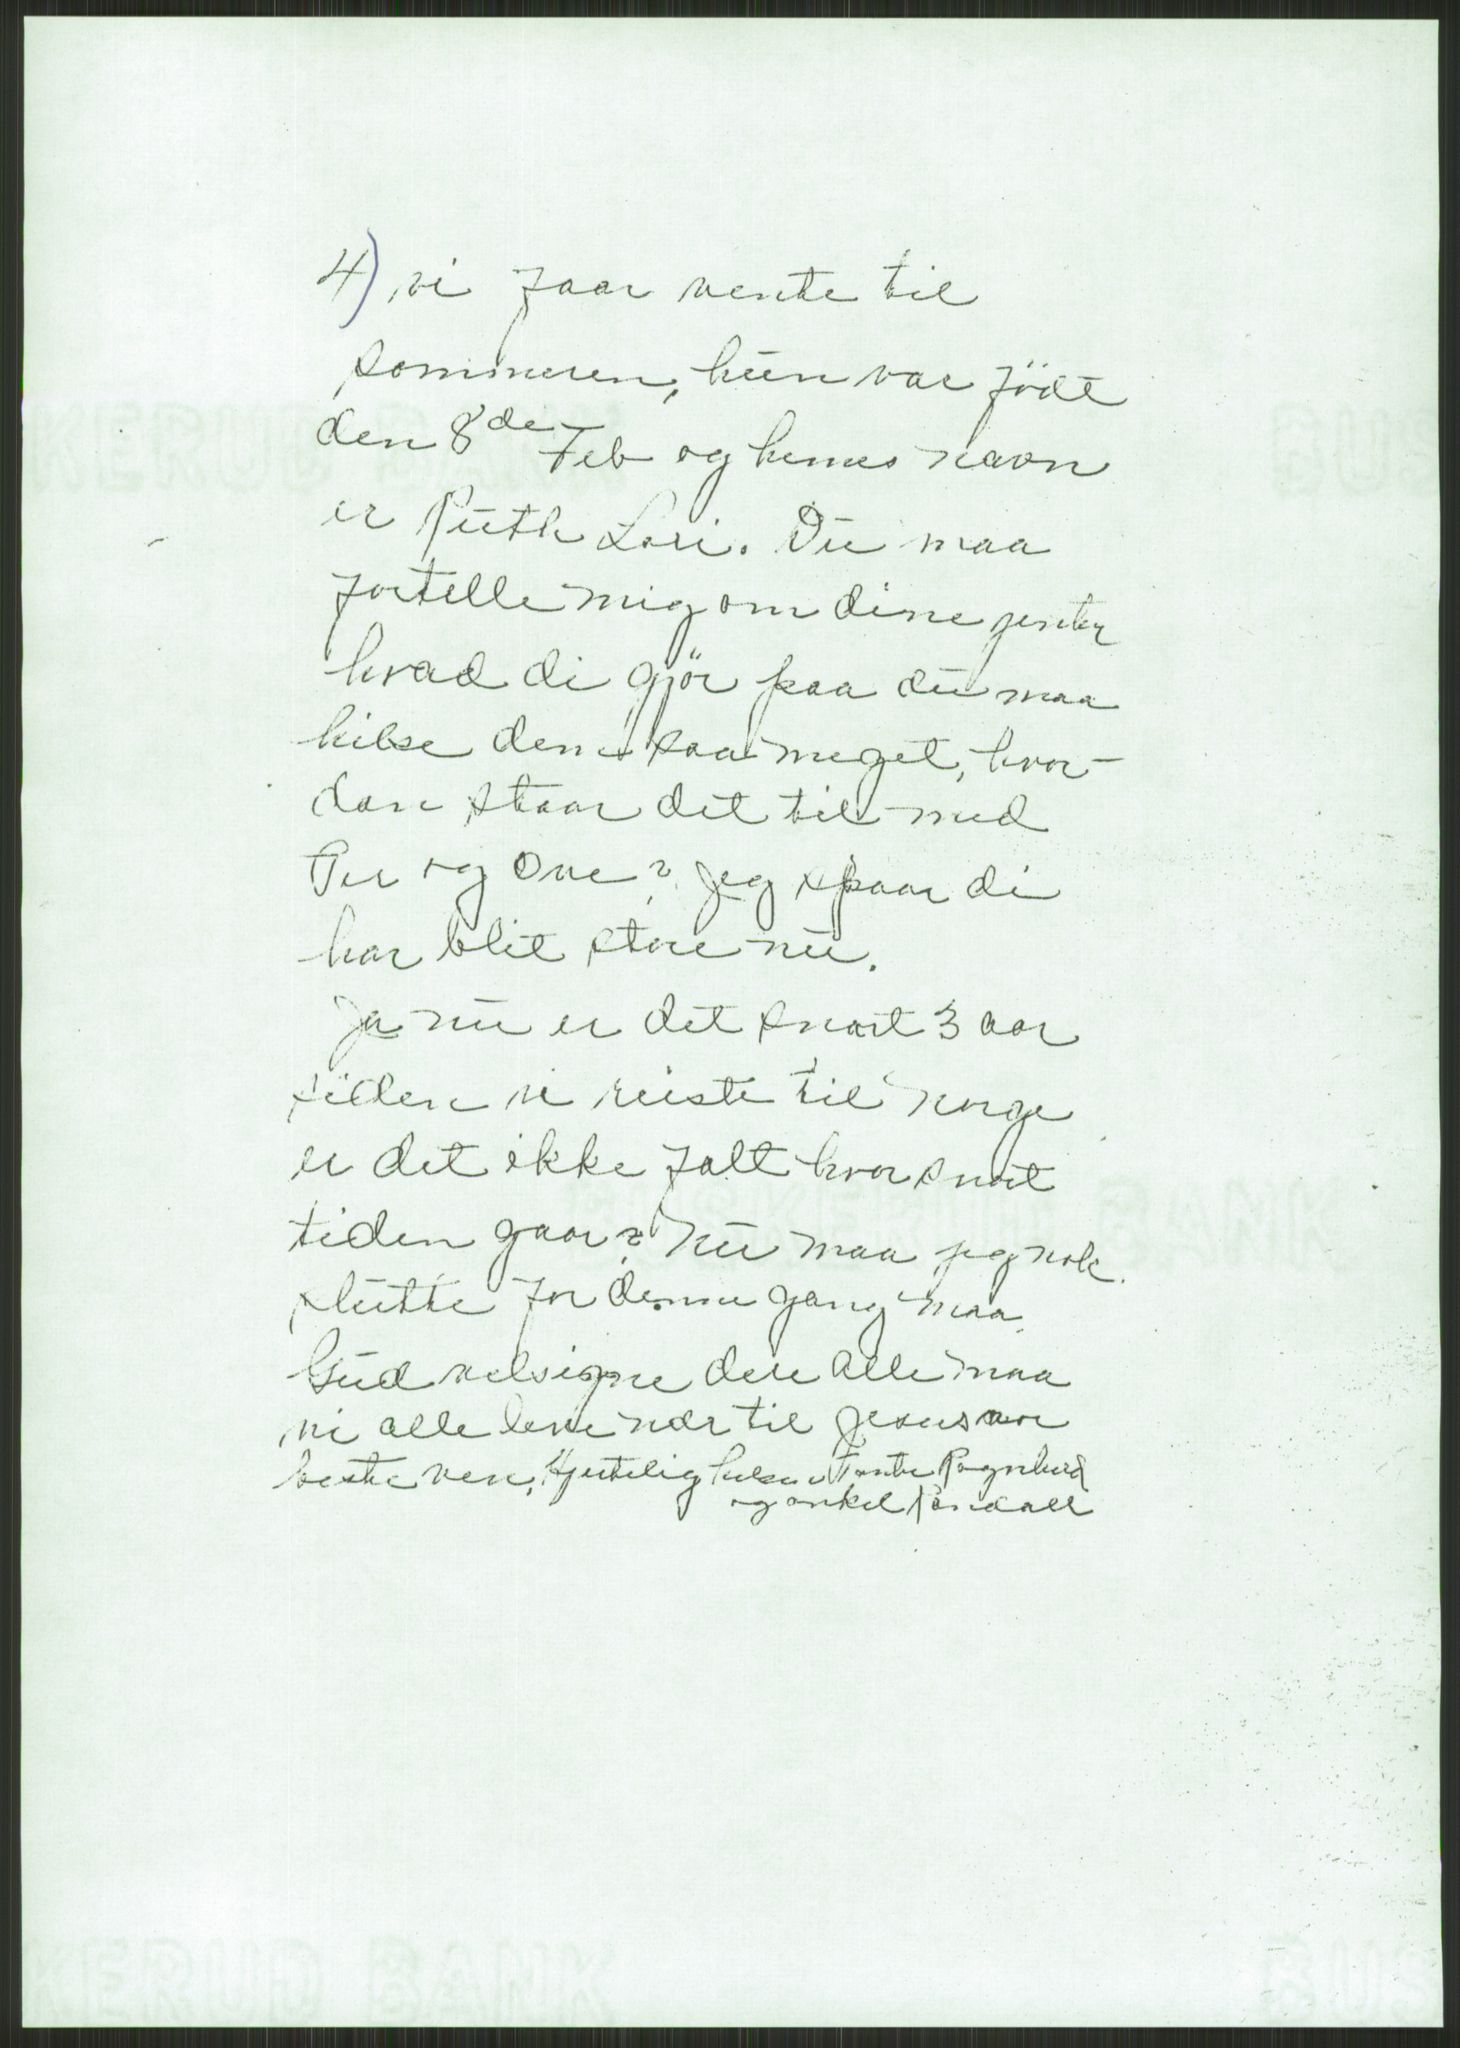 4) vi faar vente til
sommeren, hun var född
den 8de Feb og hennes navn
er Ruth Lori. Du maa
fortelle mig om dine jenter
hvad di gjör paa du maa
hilse dem saa meget, hvor-
dan staar det til med
Per og Ove? jeg spaar di
har blit store nu.
Ja nu er det snart 3 aar
siden vi reiste til norge
er det ikke falt hvor snart
tiden gaar? nu maa jeg nok
slutte for denne gang maa
Gud velsigne dere alle maa
vi alle leve nær til Jesus vor
beste ven. Hjertelig hilsen Tante Ragnhild
og onkel Randall